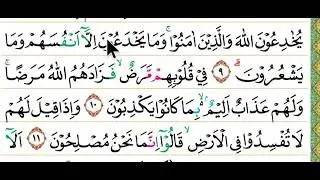 يُخٰدِعُوْنَ اللّٰهَ وَالَّذِيْنَ اٰمَنُوْا ۚ وَمَا يَخْدَعُوْنَ اِلَّآ اَنْفُسَهُمْ وَمَا
يَشْعُرُوْنَ ۗ ٩ فِيْ قُلُوْبِهِمْ مَّرَضٌ ۙ فَزَادَهُمُ اللّٰهُ مَرَضًا ۚ
وَلَهُمْ عَذَابٌ اَلِيْمٌ ۢ ۙ بِمَا كَانُوْا يَكْذِبُوْنَ ١٠ وَاِذَا قِيْلَ لَهُمْ
لَا تُفْسِدُوْا فِى الْاَرْضِ ۙ قَالُوْٓا اِنَّمَا نَحْنُ مُصْلِحُوْنَ ١١ اَلَآ